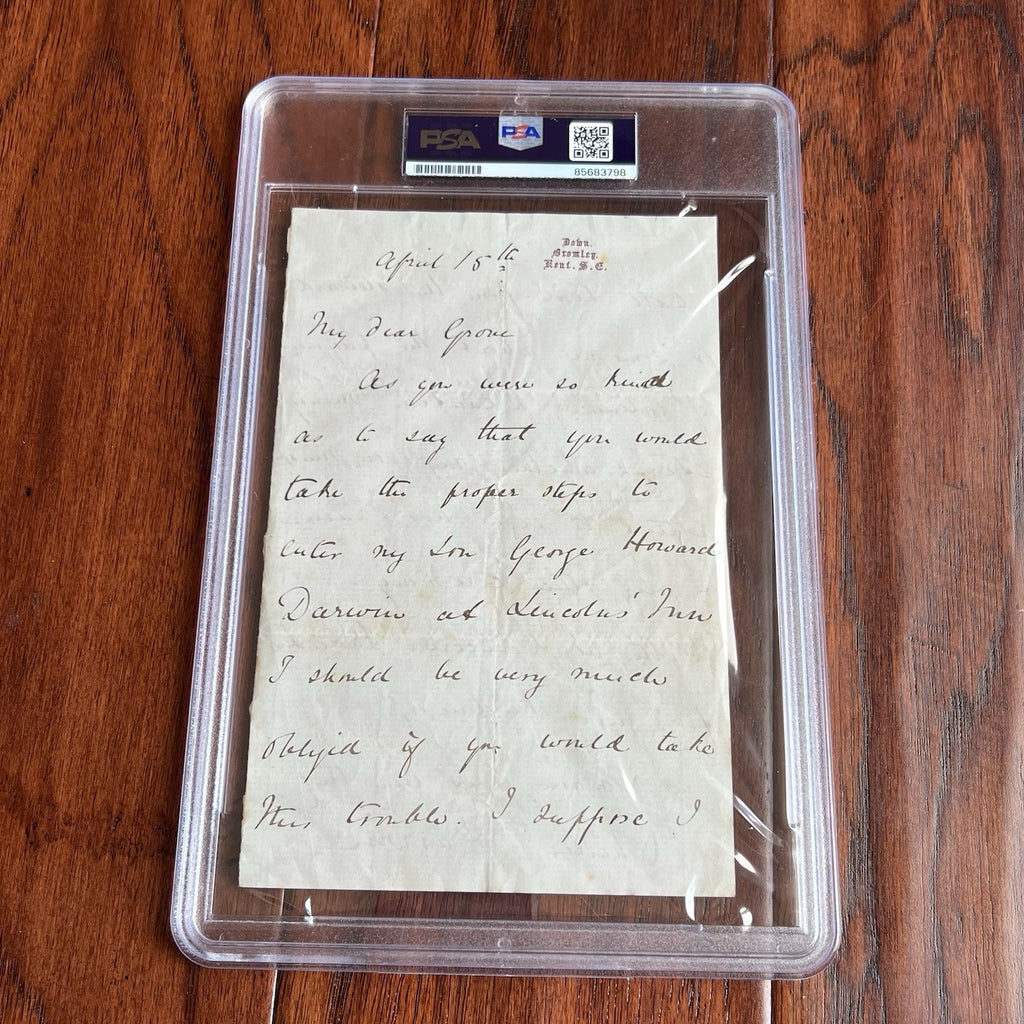 PSA
PSA
85683798
April 15th
Down.
Bromley.
Kent. S.E.
My dear Grove
As you were so kind
as to say that you would
take the proper steps to
enter my son George Howard
Darwin at Lincolns' Inn
I should be very much
obliged if you would take
this trouble. I suppose I